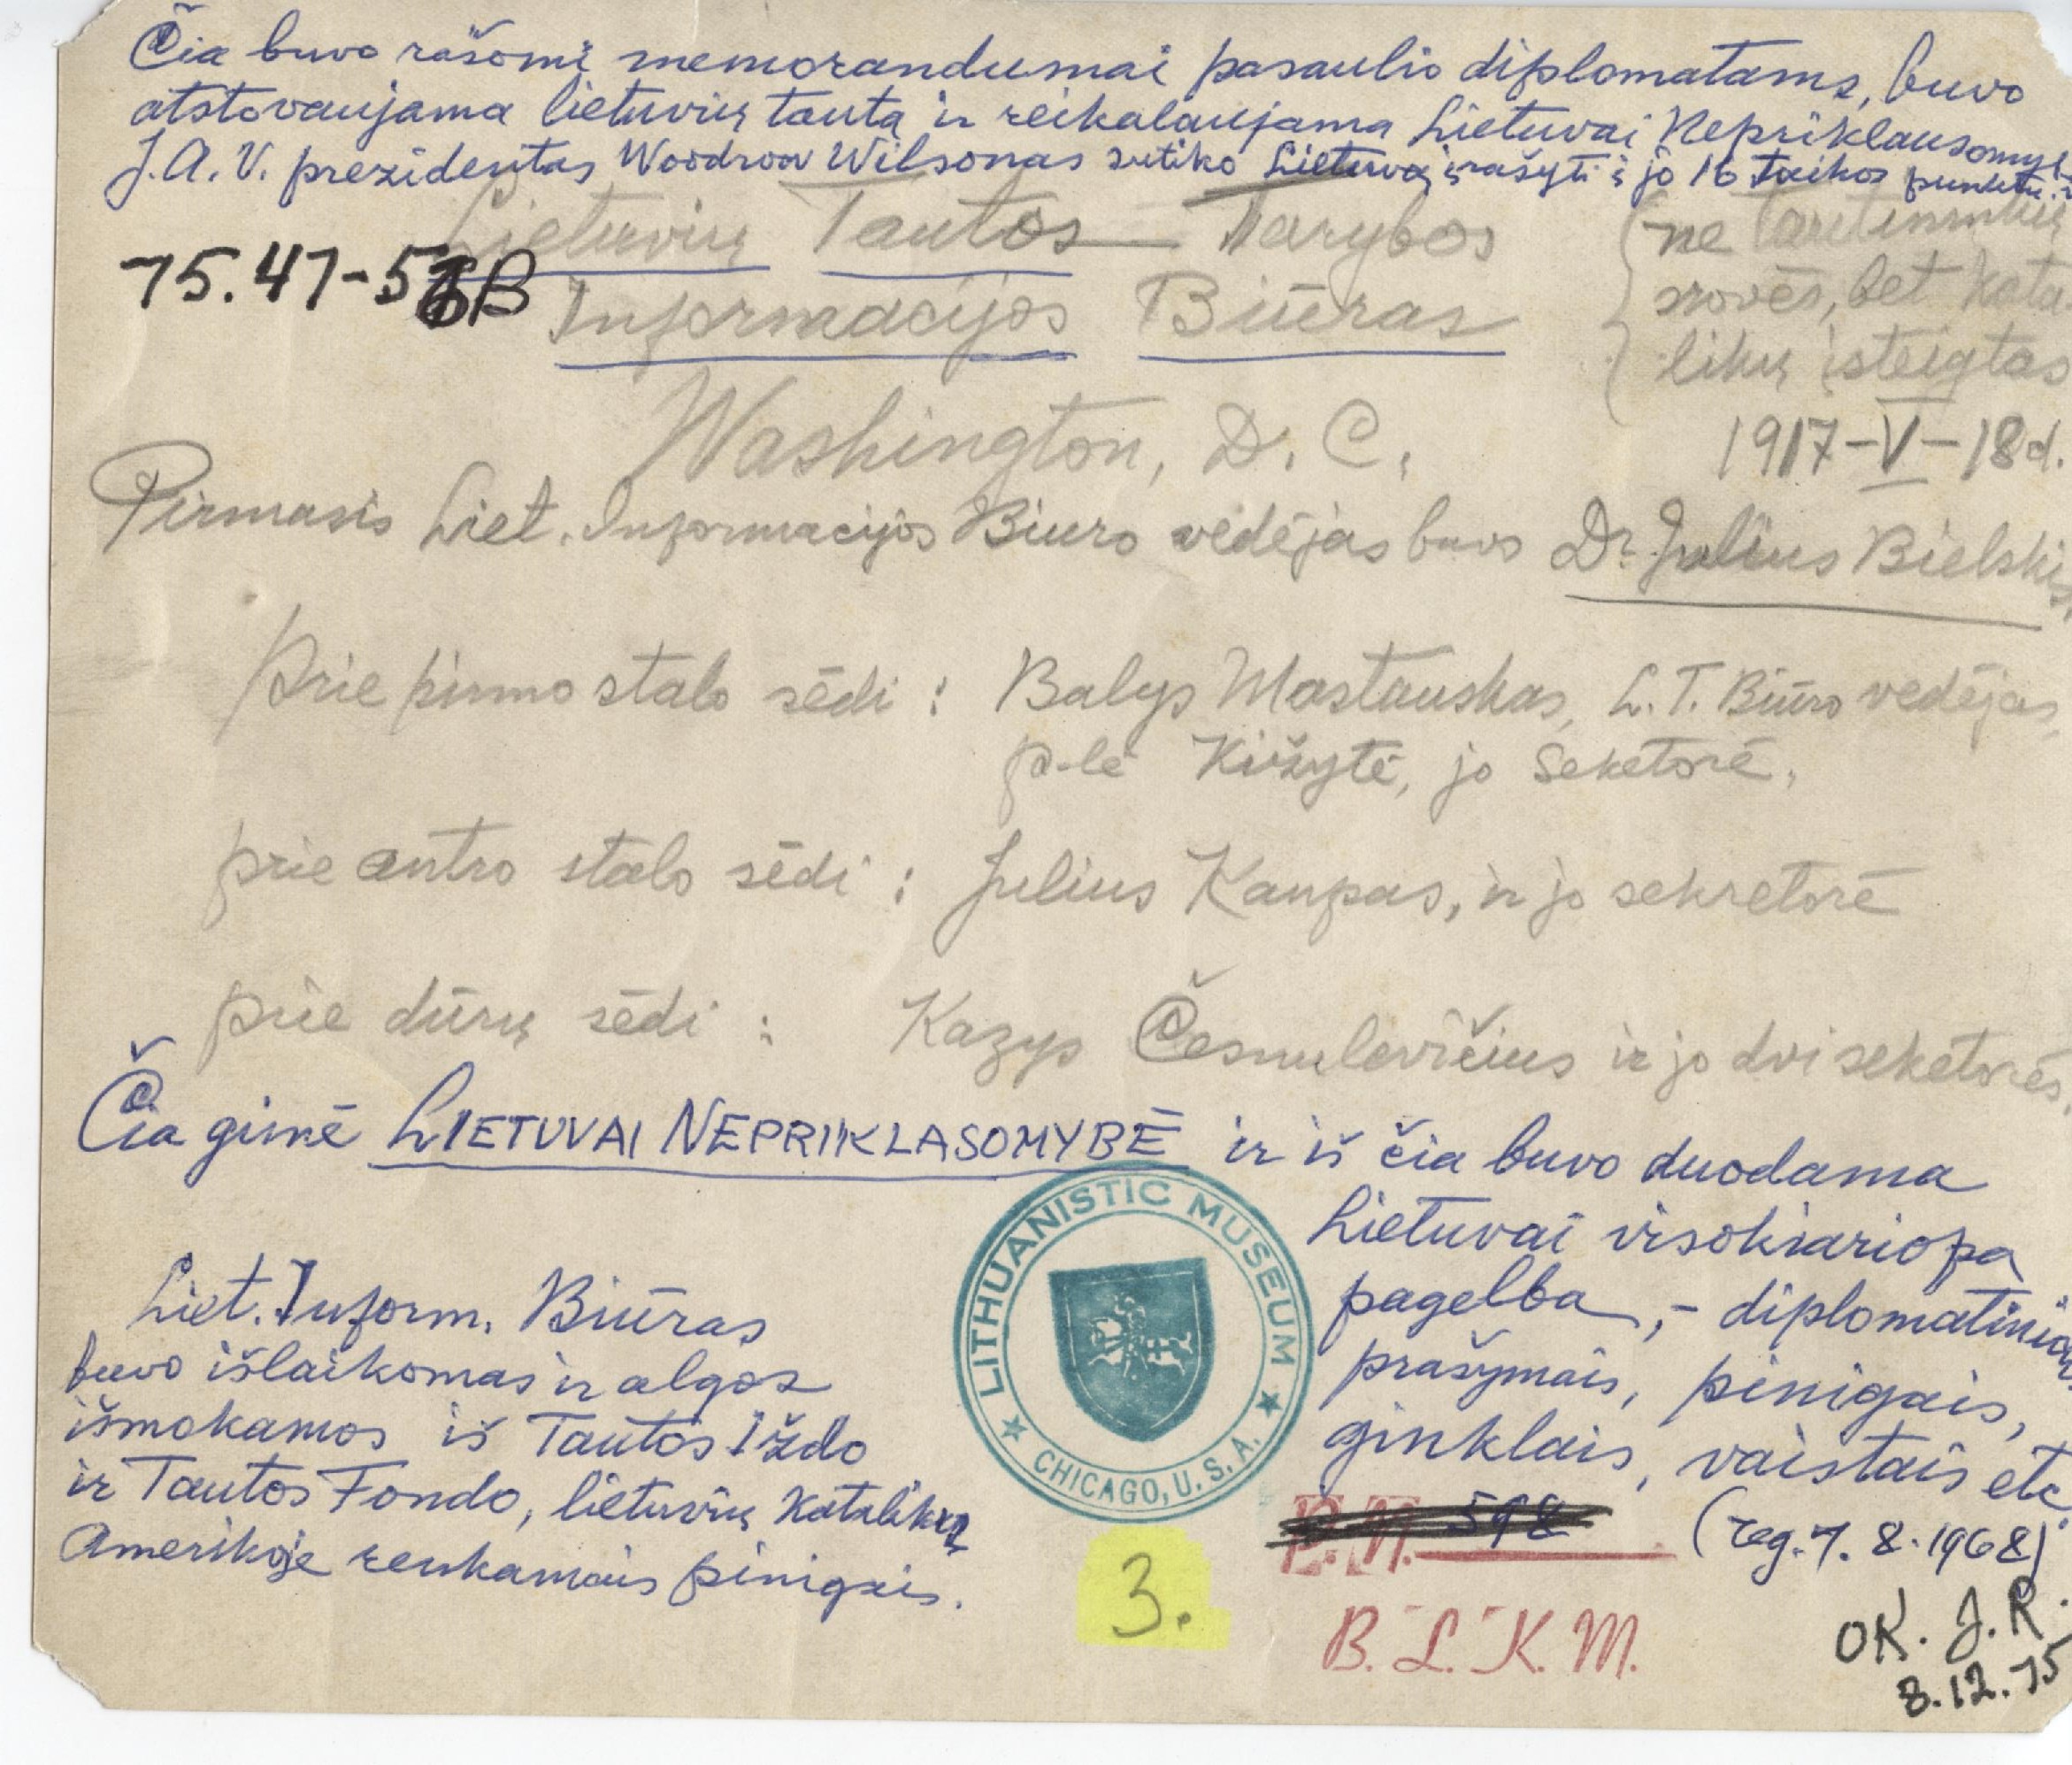 Čia buvo rašomi memorandumai pasaulio diplomatams, buvo
atstovaujama lietuvių tauta ir reikalaujama Lietuvai Nepriklausomyb
J.A.V. prezidentas Woodrow Wilsonas sutiko Lietuvą įrašyti į jo 16 taikos punktų.
Lietuvių Tautos Tarybos
Informacijos Biūras
Washington, D.C.
75.47-5 B
ne tautininkų
srovės, bet kata
likų įsteigtas
1917-V-18d.
Pirmasis Liet. Informacijos Biuro vedėjas buvo Dr. Julius Bielskis
Prie pirmo stalo sėdi : Balys Mastauskas, L.T. Biūro vedėjas,
p-lė Kižytė, jo seketorė,
prie antro stalo sėdi : Julius Kaupas, ir jo sekretorė
prie dūrų sėdi : Kazys Česnulevičius ir jo dvi seketorės.
Čia gimė LIETUVAI NEPRIKLASOMYBĖ ir iš čia buvo duodama
Lietuvai visokiariopa
pagelba, - diplomatiniais
prašymais, pinigais,
ginklais, vaistais etc.
(reg. 7. 8. 1968)
Liet. Inform. Biūras
buvo išlaikomas ir algos
išmokamos iš Tautos Iždo
ir Tautos Fondo, lietuvių Katalikų
Amerikoje renkamais pinigais.
LITHUANISTIC MUSEUM
CHICAGO, U.S.A.
P.M. 598
3.
B.L.K.M.
OK. J.R.
8.12.75